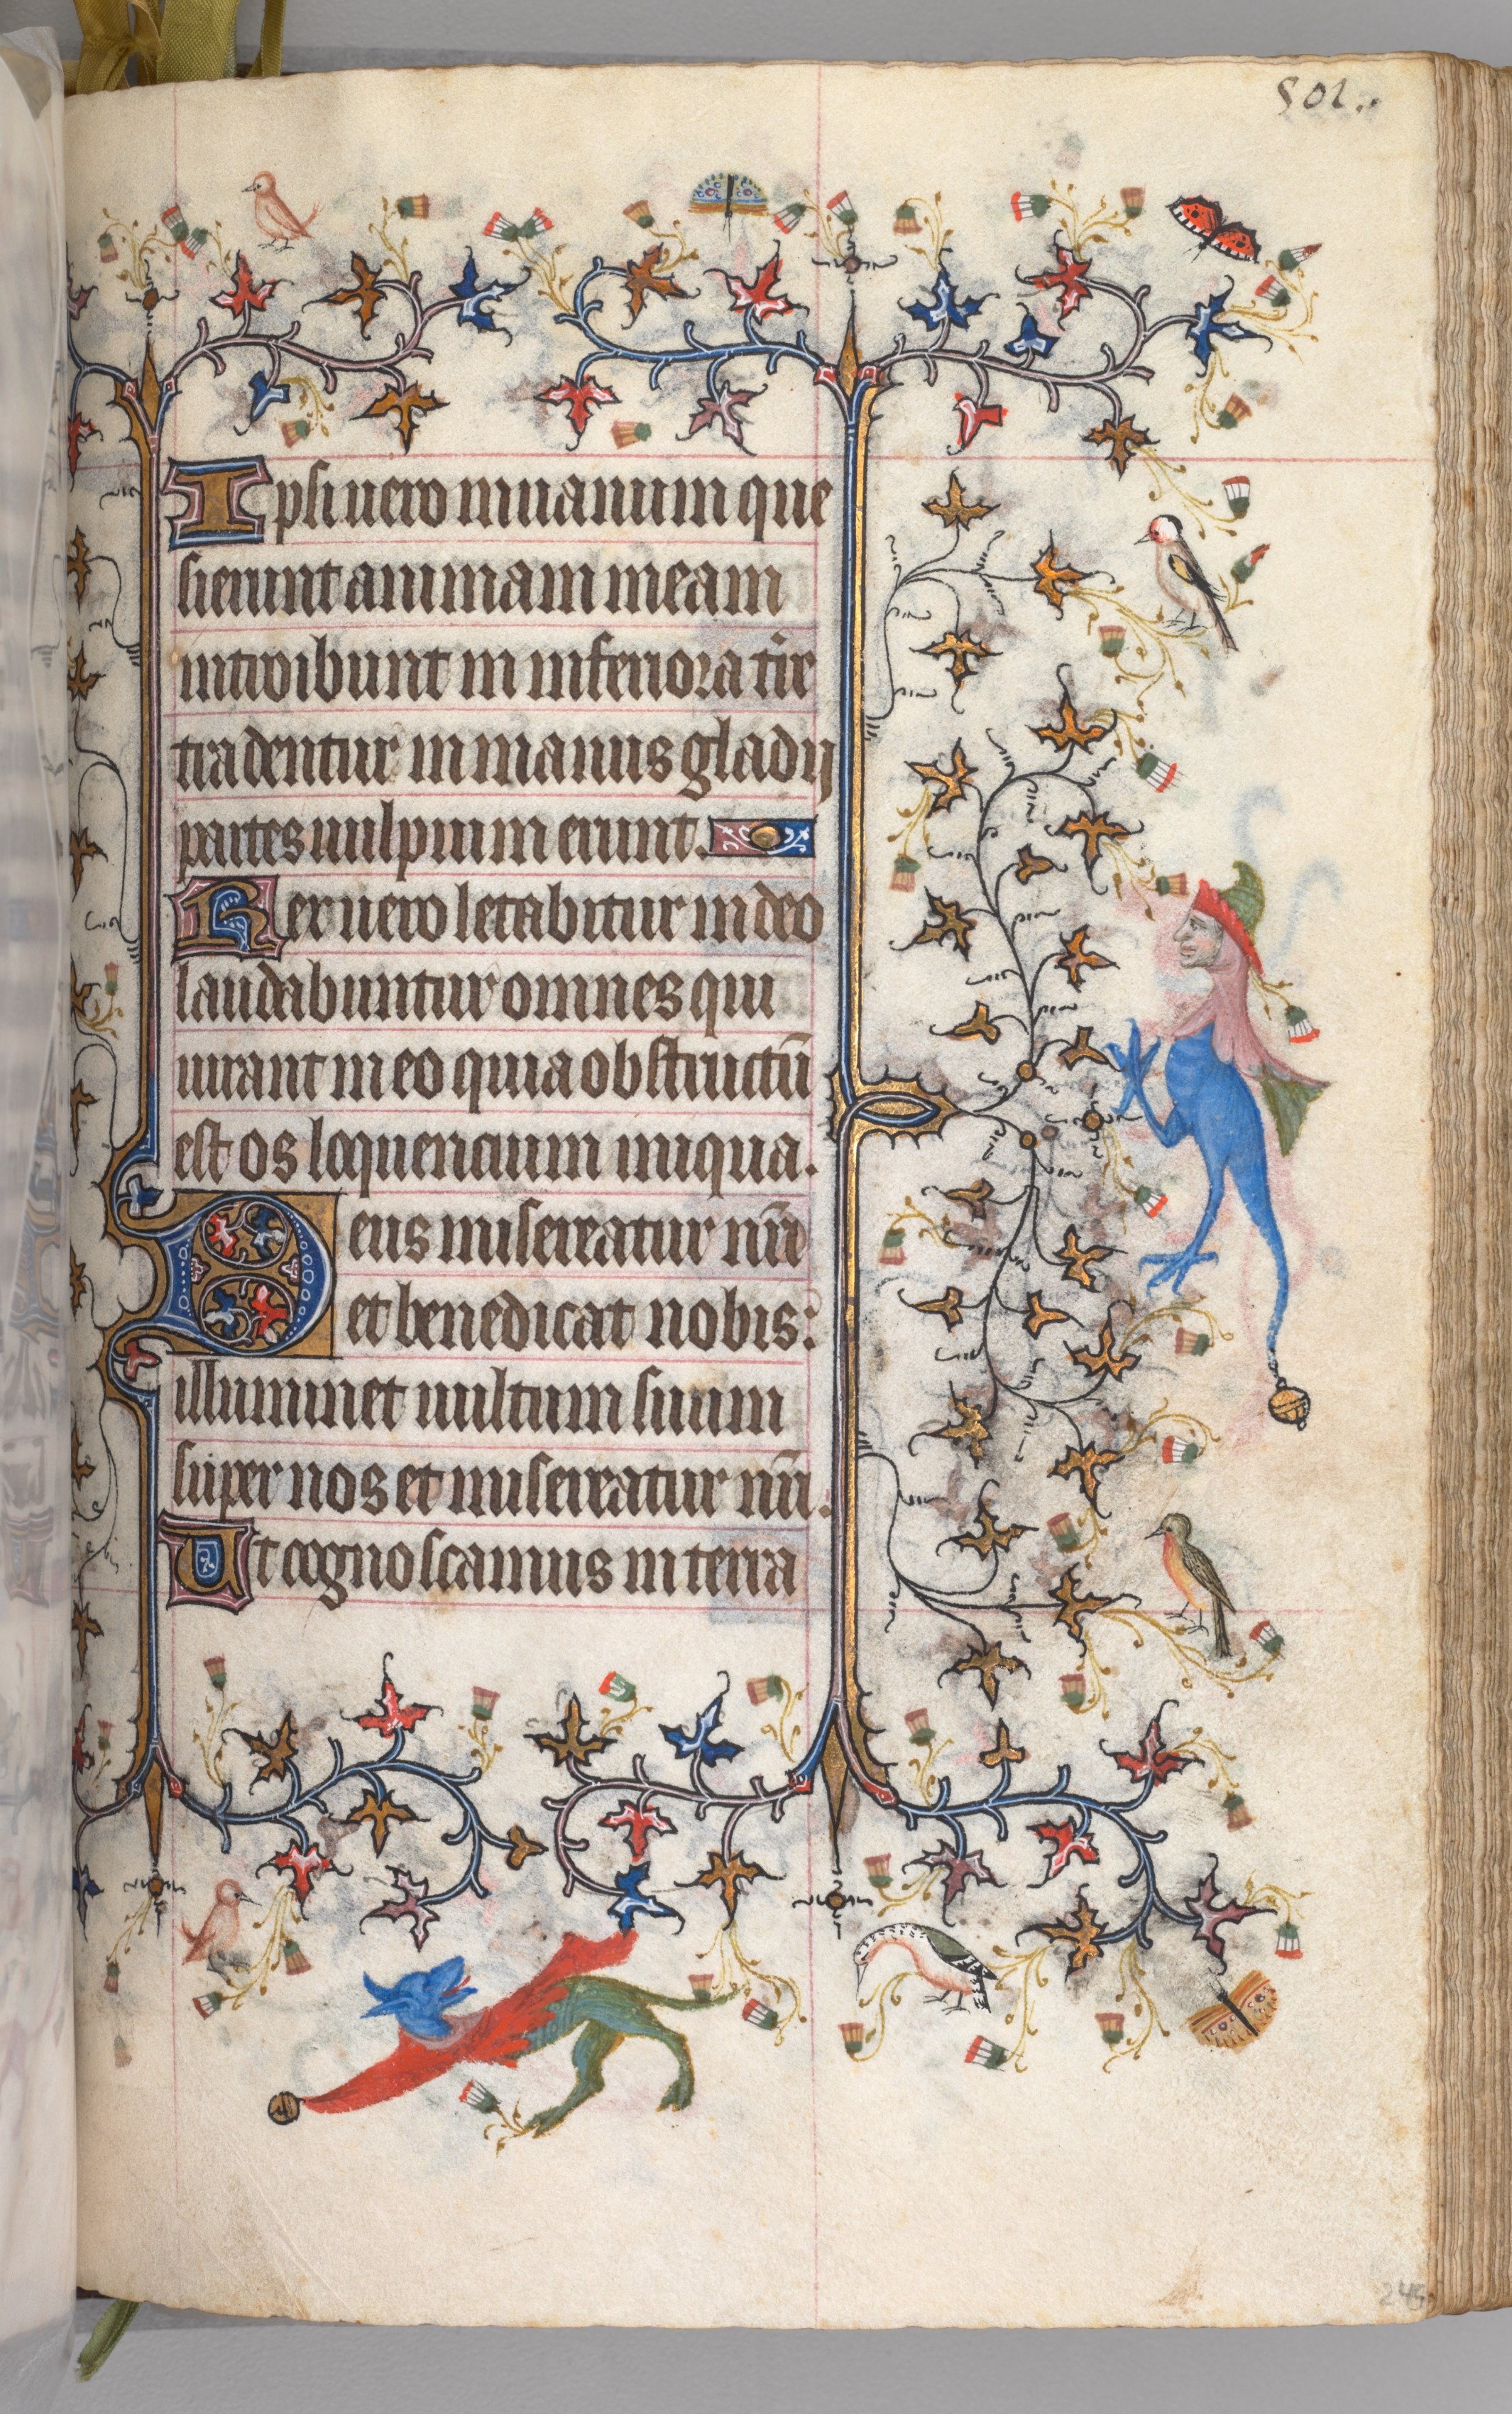 502..
Ipsi uero in uanum que
sierunt animam meam
introibunt in inferiora tr̄re
tradentur in manus gladij
partes uulpium erunt.
Rex uero letabitur in deo
laudabuntur omnes qui
iurant in eo quia obstructū
est os loquencium iniqua.
Deus misereatur nr̄i
et benedicat nobis:
illuminet uultum suum
super nos et misereatur nr̄i.
Ut cognoscamus in terra
245